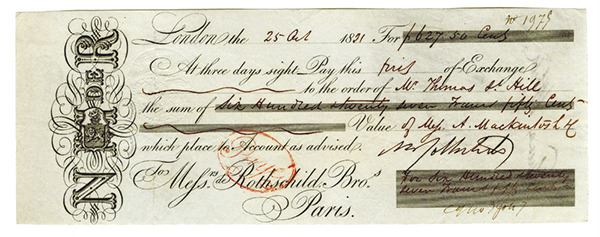 No 1975
London the 25 Oct 1821 For f 627.50 Cents
At three days sight Pay this first of Exchange
to the order of Mr. Thomas St Hill
the sum of Six Hundred twenty seven Francs fifty Cents
Value of Messrs A. Mackintosh & C
which place to Account as advised.
To Messrs. de Rothschild Bro.s
Paris.
For Six Hundred twenty
seven Francs
N M DE R